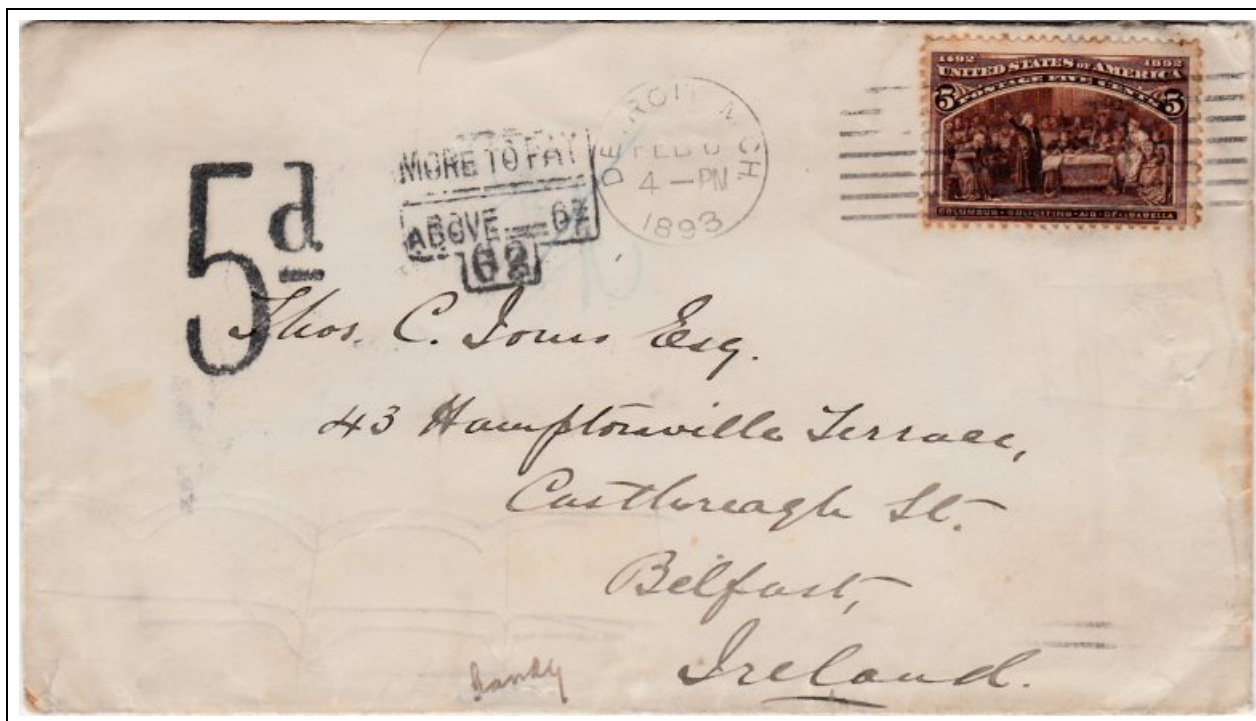 1492 1892
UNITED STATES OF AMERICA
POSTAGE FIVE CENTS
5 5
COLUMBUS SOLICITING AID OF ISABELLA
DETROIT MICH
FEB 6
4 - PM
1893
MORE TO PAY
ABOVE oz
62
5d.
Thos. C. Esq.
43 Hamptonville Terrace,
Castlereagh St.
Belfast,
Ireland.